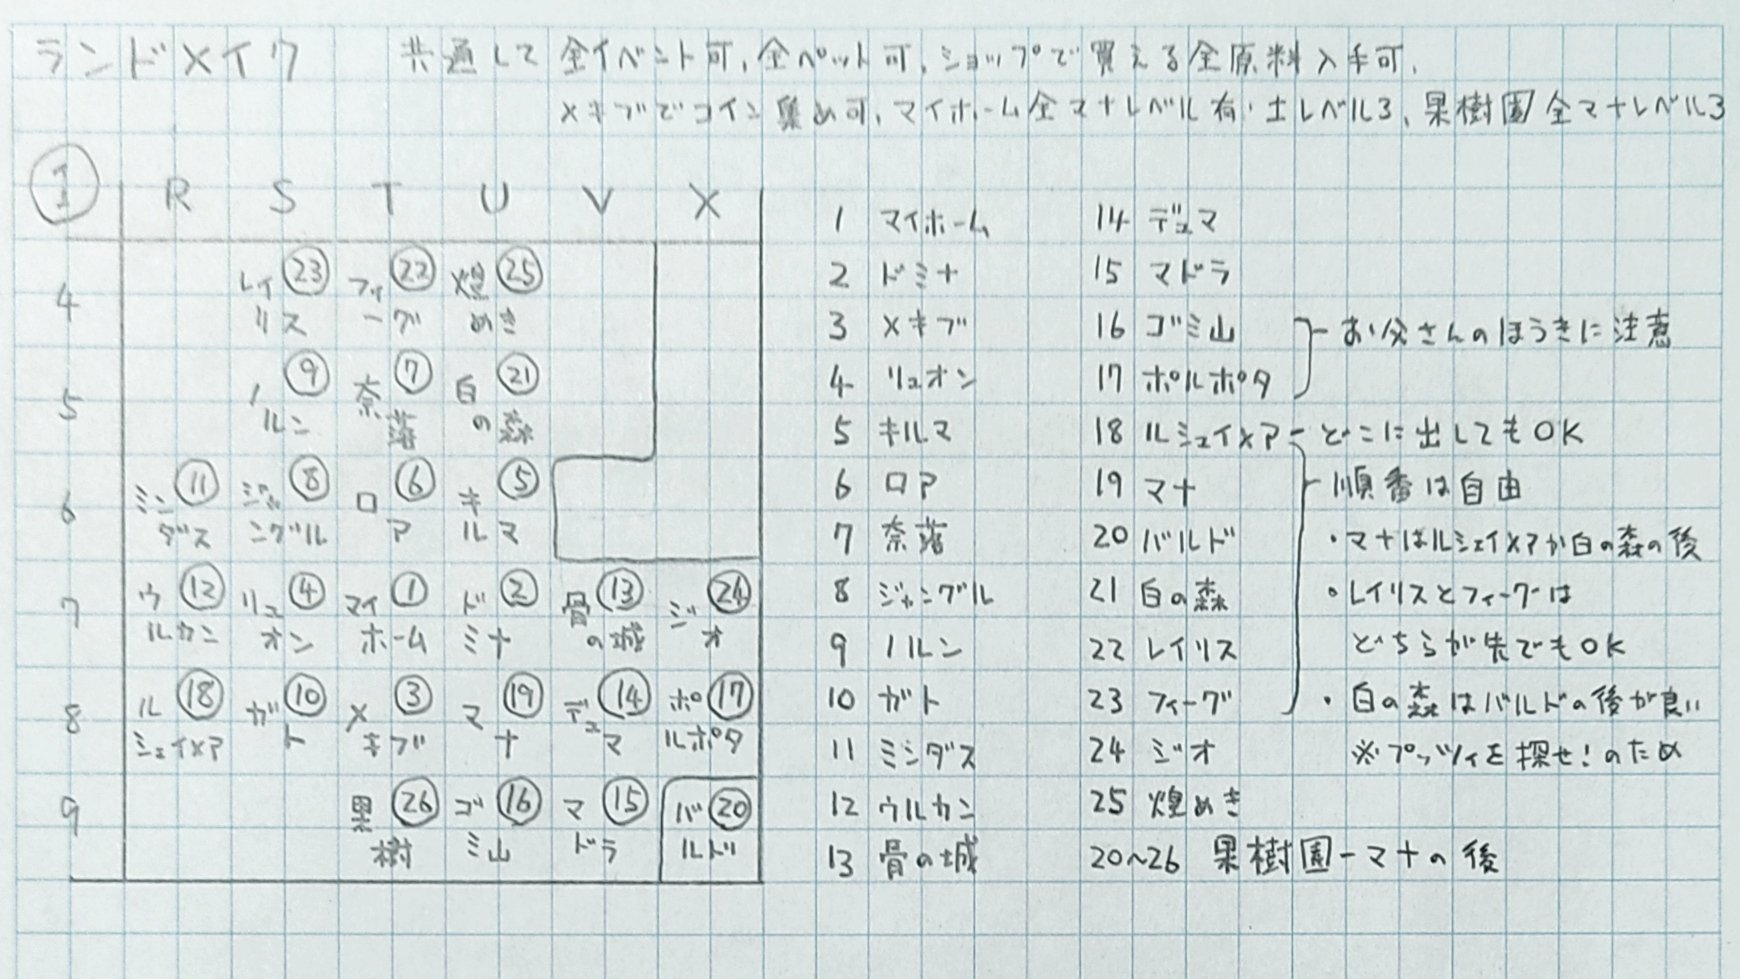 ランドメイク 共通して 全イベント可、全ペット可、ショップで買える全原料入手可、
メキブでコイン集め可、マイホーム全マナレベル有・土レベル3、果樹園全マナレベル3
R S T U V X
4 レイリス 23 フィーグ 22 煌めき 25
5 ノルン 9 奈落 7 白の森 21
6 ミンダス 11 ジャングル 8 ロア 6 キルマ 5
7 ウルカン 12 リュオン 4 マイホーム 1 ドミナ 2 骨の城 13 ジオ 24
8 ルシェイメア 18 ガト 10 メキブ 3 マナ 19 デュマ 14 ポルポタ 17
9 果樹 26 ゴミ山 16 マドラ 15 バルド 20
1 マイホーム
2 ドミナ
3 メキブ
4 リュオン
5 キルマ
6 ロア
7 奈落
8 ジャングル
9 ノルン
10 ガト
11 ミンダス
12 ウルカン
13 骨の城
14 デュマ
15 マドラ
16 ゴミ山
17 ポルポタ
お父さんのほうきに注意
18 ルシェイメア - どこに出してもOK
19 マナ
20 バルド
21 白の森
22 レイリス
23 フィーグ
24 ジオ
25 煌めき
20~26 果樹園-マナの後
順番は自由
・マナはルシェイメアか白の森の後
・レイリスとフィーグは
どちらが先でもOK
・白の森はバルドの後が良い
※プッツィを探せ!のため